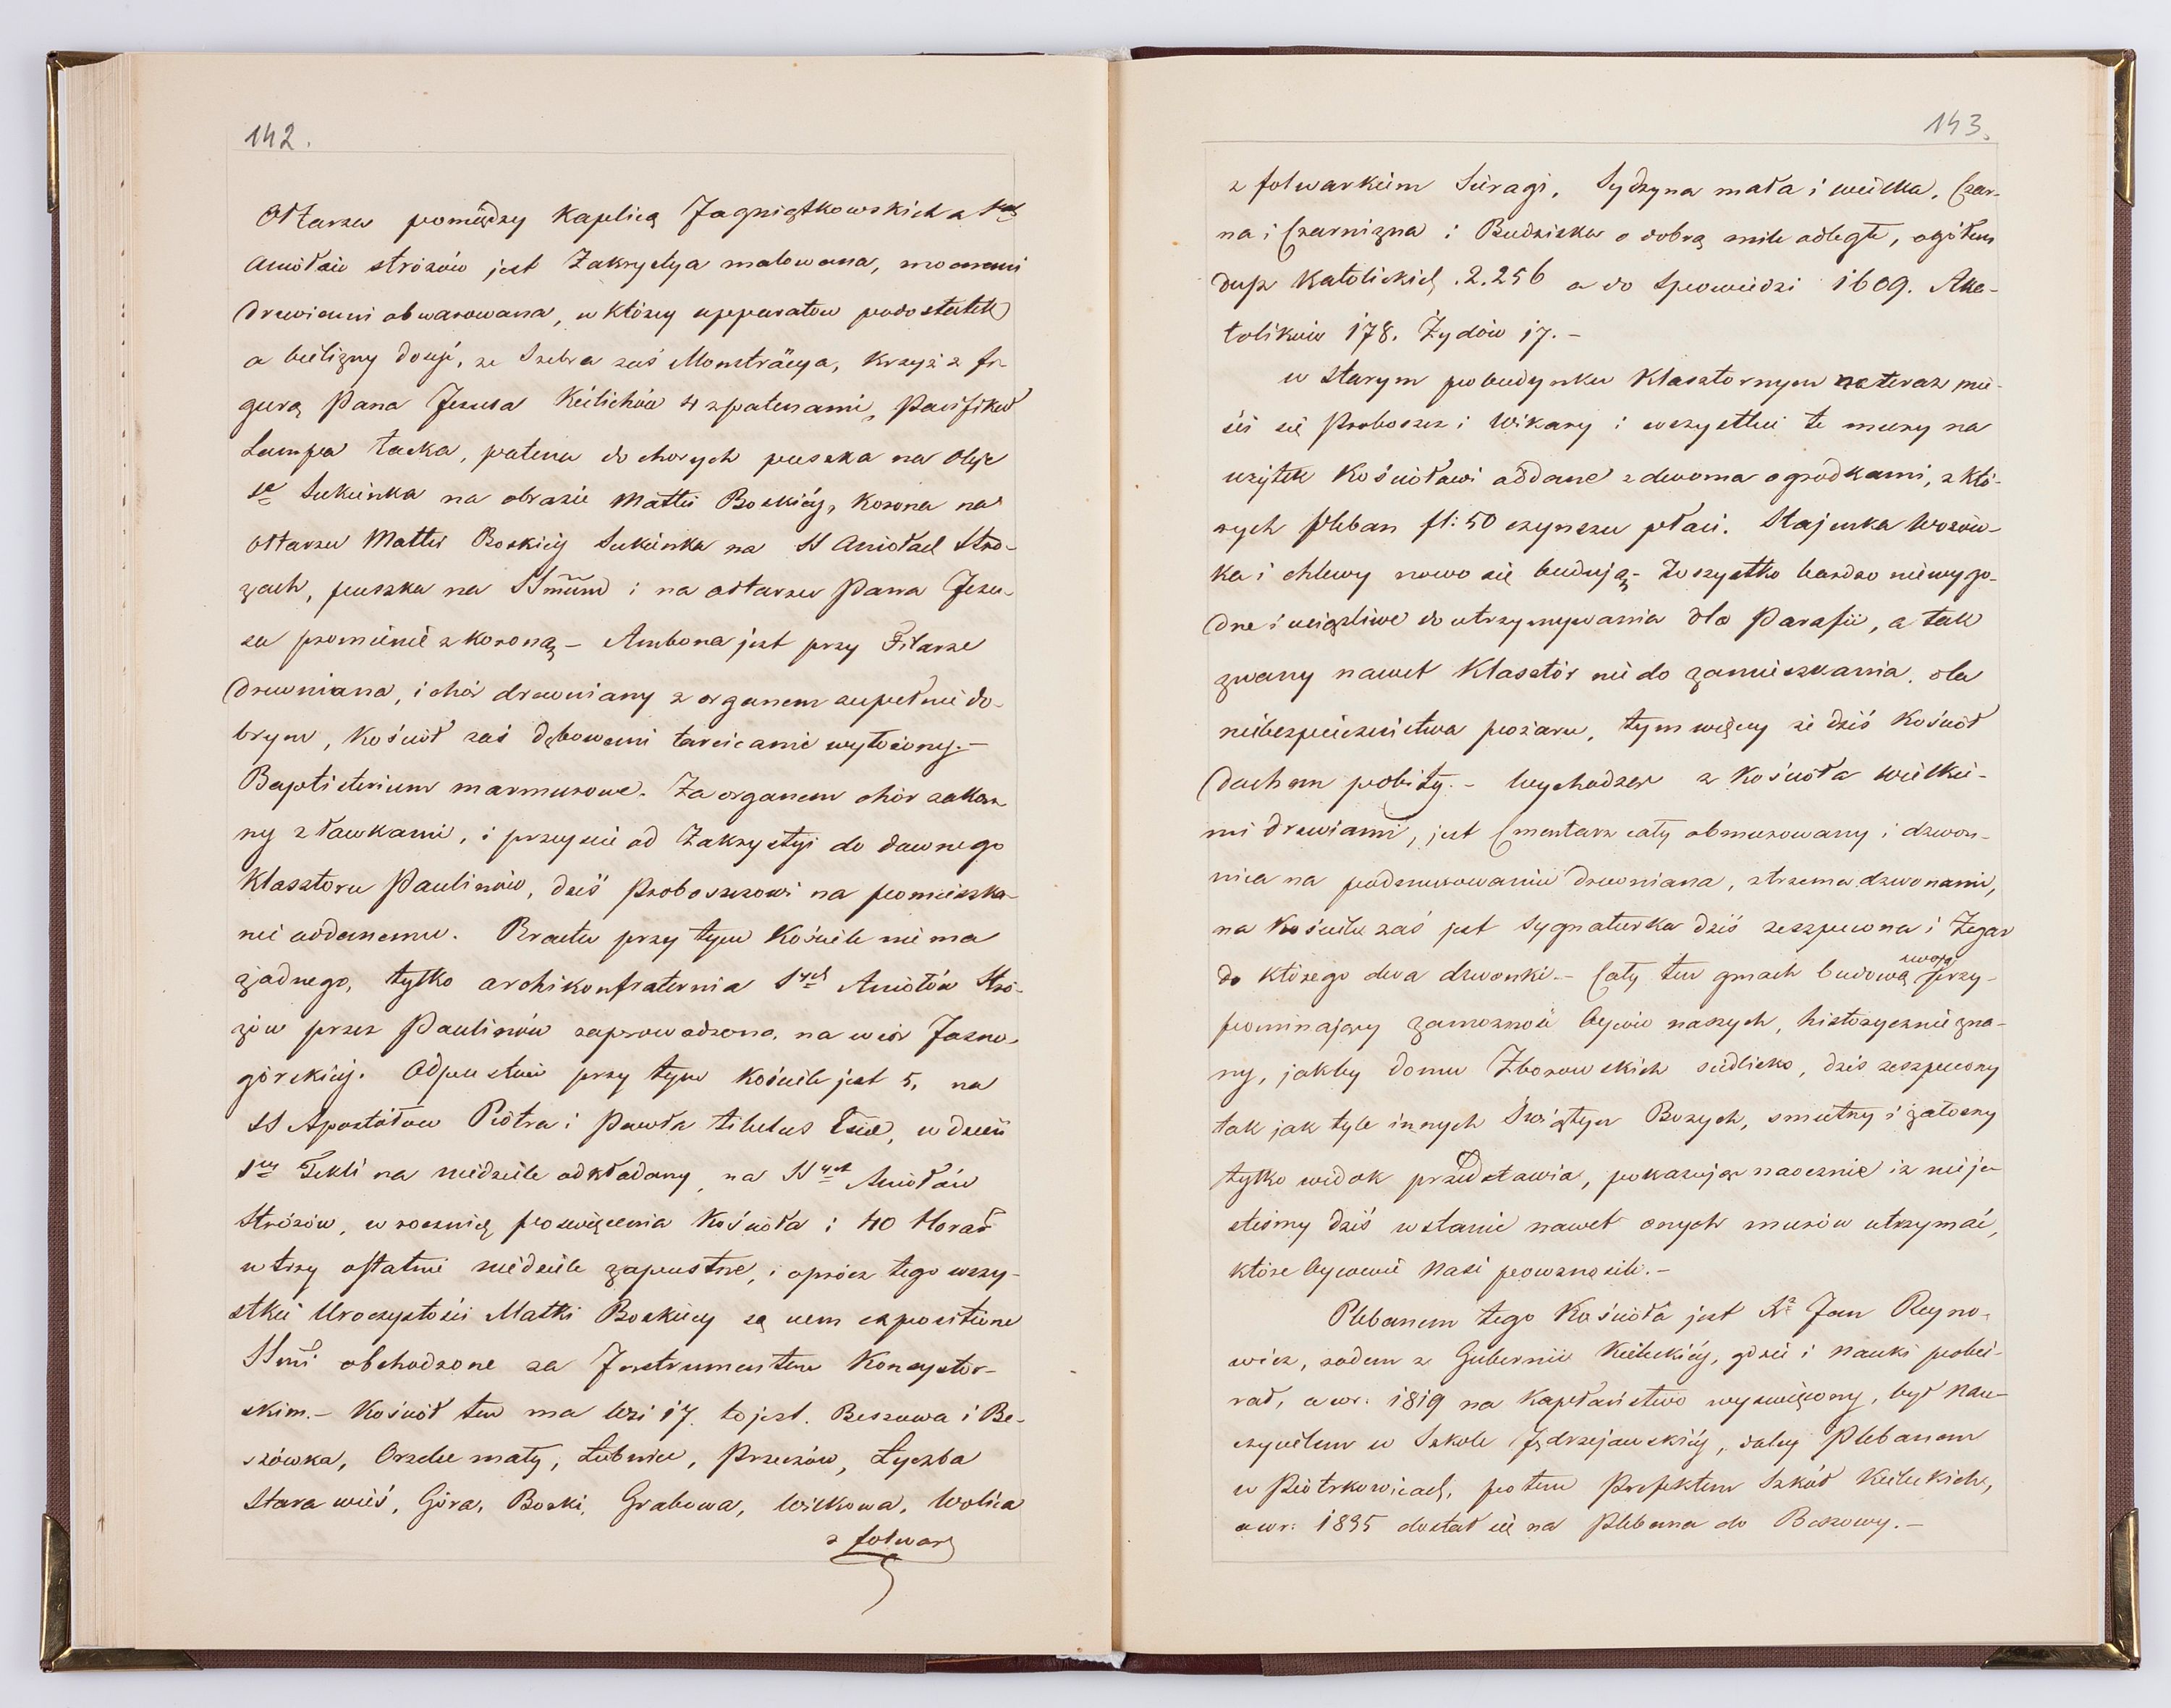 142.
Ołtarzu pomiędzy Kaplicą Jagniątkowskich a Stych
Aniołów stróżów jest Zakrystya malowana, mocnemi
drzwiami obwarowana, w której apparatów podostatek
a bielizny dosyć, ze Srebra zaś Monstrącya, Krzyż z fi-
gurą Pana Jezusa Kielichów 4 z patenami, Pacifikał
Lampa tacka, patena do chorych puszka na Oleje
Ste Sukienka na obrazie Matki Boskiéy, Korona na
ołtarzu Matki Boskiéy Sukienka na SS Aniołach Stró-
żach, puszka na SSmum i na ołtarzu Pana Jezu-
sa promienie z koroną – Ambona jest przy Filarze
drewniana, i chór drewniany z organem zupełnie do-
brym, Kościół zaś dębowemi tarcicami wyłożony. –
Baptisterium marmurowe. Za organem chór zakon
ny z ławkami, i przejście od Zakrystyi do dawnego
Klasztoru Paulinów, dziś Proboszczowi na pomieszka-
nie oddanemu. Bractw przy tym Kościele nie ma
żadnego, tylko archikonfraternia Stych Aniołów Stró-
żów przez Paulinów zaprowadzona, na wzór Jasno-
górskiéy. Odpustów przy tym Kościele jest 5, na
SS Apostołów Piotra i Pawła titulus Eccl, w dzień
Stey Tekli na niedziele odkładany, na SSych Aniołów
Stróżów, w rocznicę poswięcenia Kościoła i 40 Horar
w trzy ostatnie niedziele zapustne, i oprócz tego wszy-
stkie Uroczystości Matki Boskiey są cum expositione
SSmi obchodzone za Instrumentem Konsystor-
skim. – Kościół ten ma wsi 17. to jest. Beszowa i Be-
szówka, Orzelec mały, Łubnice, Przeczów, Łyczba
Stara wieś, Góra, Borki, Grabowa, Wilkowa, Wolica
z folwar
143.
z folwarkiem Suragi, Sydzyna mała i wielka, Czar-
na i Czarnizna i Budziska o dobrą mile odległe, ogółem
dusz Katolickich .2.256 a do Spowiedzi 1609. Aka-
tolików 178. Żydów 17. –
w starym pobudynku Klasztornym na teraz mie-
ści się Proboszcz i Wikary i wszystkie te mury na
użytek Kościołowi oddane z dwoma ogródkami, z któ-
rych Pleban fl: 50 czynszu płaci. Stajenka Wozów-
ka i chlewy nowo się budują – Wszystko bardzo niewygo-
dne i uciążliwe do utrzymywania dla Parafii, a tak
zwany nawet Klasztór nie do zamieszkania, dla
niebezpieczeństwa pożaru, tym więcy że dziś Kościół
dachem pobity. – Wychodząc z Kościoła wielkie-
mi drzwiami, jest Cmentarz cały obmurowany i dzwon-
nica na podmurowaniu drewniana, z trzema dzwonami,
na Kościele zaś jest sygnaturka dziś zeszpecona i Zegar
do którego dwa dzwonki. – Cały ten gmach budową swoją przy-
pominający zamożność Oyców naszych, historycznie zna-
ny, jakby domu Zborowskich siedlisko, dziś zeszpecony
tak jak tyle innych Świątyn Bozych, smutny i żałosny
tylko widok przedstawia, pokazując naocznie iż nieje-
steśmy dziś w stanie nawet onych murów utrzymać,
które Oycowie nasi powznosili. –
Plebanem tego Kościoła jest Xdz Jan Reyno-
wicz, rodem z Gubernii Kieleckiéy, gdzie i nauki pobie-
rał, a w r: 1819 na Kapłaństwo wyswięcony, był Nau-
czycielem w Szkole Jędrzejowskiéy, daléy Plebanem
w Piotrkowicach, potem Prefektem Szkół Kieleckich,
a w r: 1835 dostał się na Plebana do Beszowy. –